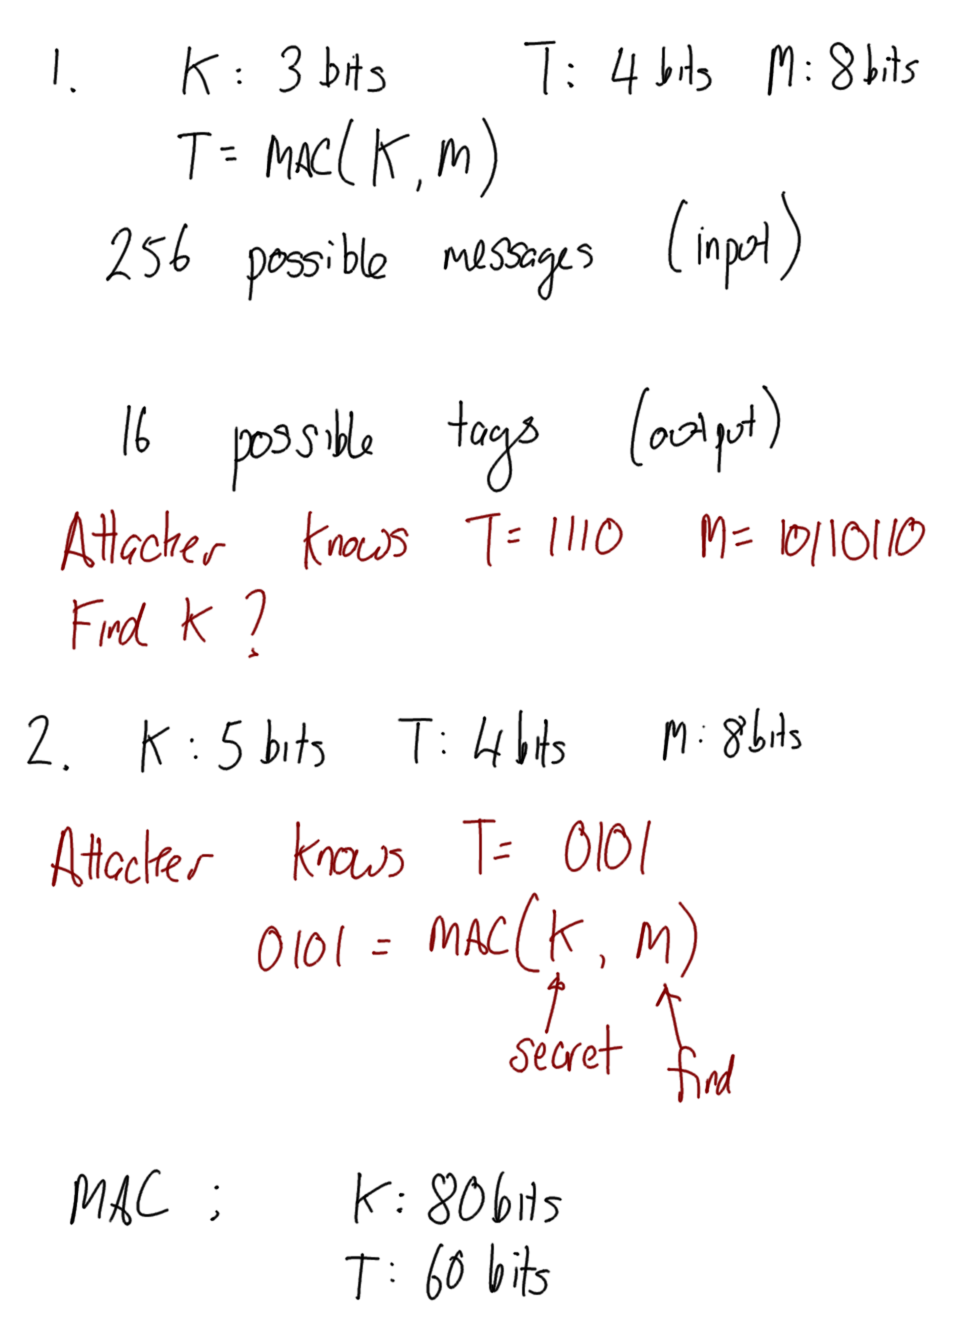 1. K: 3 bits T: 4 bits M: 8 bits
T = MAC(K, M)
256 possible messages (input)
16 possible tags (output)
Attacker knows T= 1110 M= 10110110
Find K ?
2. K: 5 bits T: 4 bits M: 8 bits
Attacker knows T= 0101
0101 = MAC(K, M)
secret find
MAC ; K: 80 bits
T: 60 bits